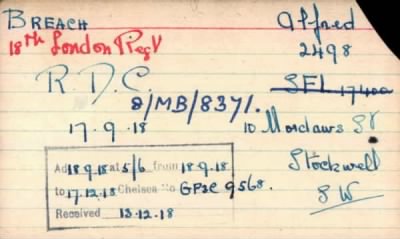 BREACH Alfred
18th London Reg 2498
R.D.C. SFL 17400
8/MB/8371.
17.9.18 10 Mordaws St
Stockwell
SW
Ad 18.9.18 at 5/6 from 18.9.18
to 17.12.18 Chelsea No GPSC 9568.
Received 13.12.18